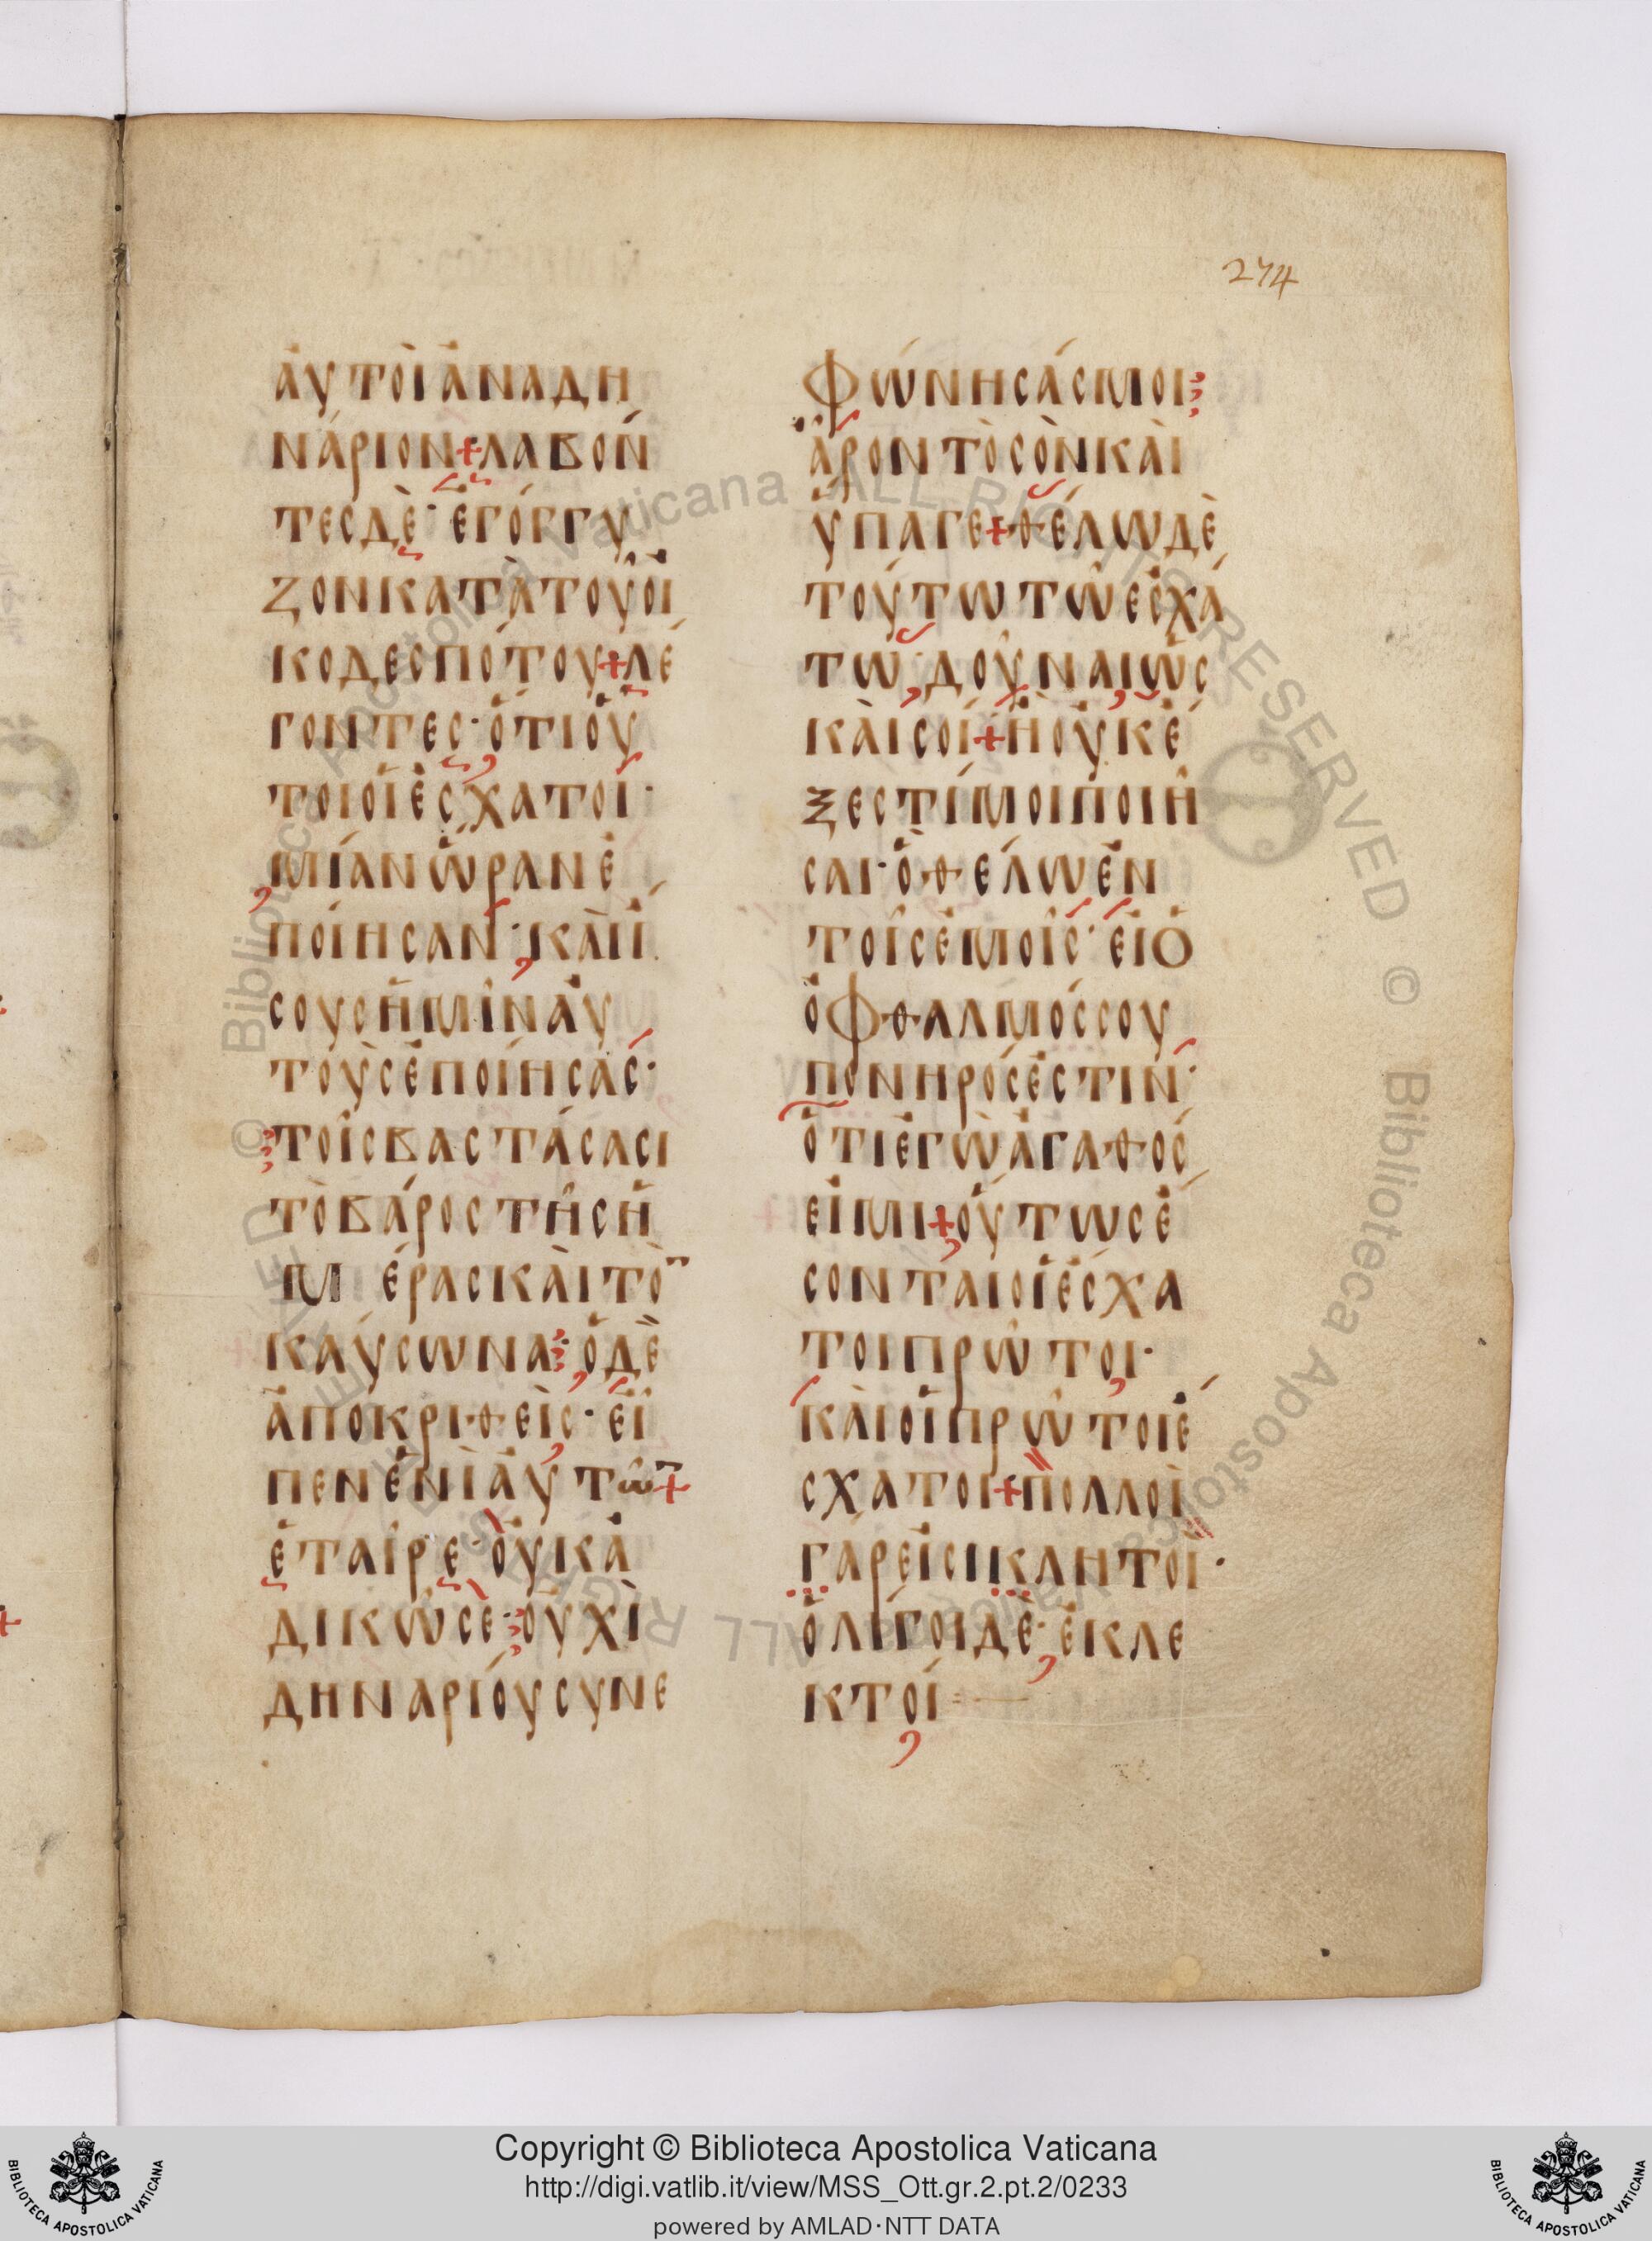 274
ἀυτοὶ ἀνα δη
νάριον + λαβόν
τες δὲ · ἐγόγγυ
ζον κατὰ τοῦ οἰ
κοδεσπότου + λέ
γοντες · ὅτι οὗ
τοι οἱ ἔσχατοι ·
μίαν ὥραν ἐ
ποίησαν · κὰι ἴ
σους ἡμῖν ἀυ
τοὺς ἐποίησας ·
τοῖς βαστάσασι
τὸ βάρος τῆς ἡ
μέρας κὰι τὸν
καύσωνα · ὁ δὲ
ἀποκριθεὶς · εἶ
πεν ἑνὶ ἀυτῶν +
ἑταῖρε · οὐκ ἀ
δικῶ σε · οὐχὶ
δηναρίου συνε
φώνησάς μοι
ἆρον τὸ σὸν κὰι
ὕπαγε + θέλω δὲ
τούτω τῶ ἐσχά
τω · δοῦναι ὡς
κὰι σοί + ἢ οὐκ ἔ
ξεστί μοι ποιῆ
σαι · ὃ θέλω ἐν
τοῖς ἐμοῖς · εἰ ο
ὀφθαλμός σου
πονηρός ἐστιν ·
ὅτι ἐγὼ ἀγαθός
εἰμι + οὕτως ἔ
σονται οἱ ἔσχα
τοι πρῶτοι ·
κὰι οἱ πρῶτοι ἔ
σχατοι + πολλοὶ
γάρ εἰσι κλητοί ·
ὀλίγοι δὲ · ἐκλε
κτοί
© Biblioteca Apostolica Vaticana ALL RIGHTS RESERVED © Biblioteca Apostolica Vaticana ALL RIGHTS RESERVED
Copyright © Biblioteca Apostolica Vaticana
http://digi.vatlib.it/view/MSS_Ott.gr.2.pt.2/0233
powered by AMLAD·NTT DATA
BIBLIOTECA APOSTOLICA VATICANA
BIBLIOTECA APOSTOLICA VATICANA